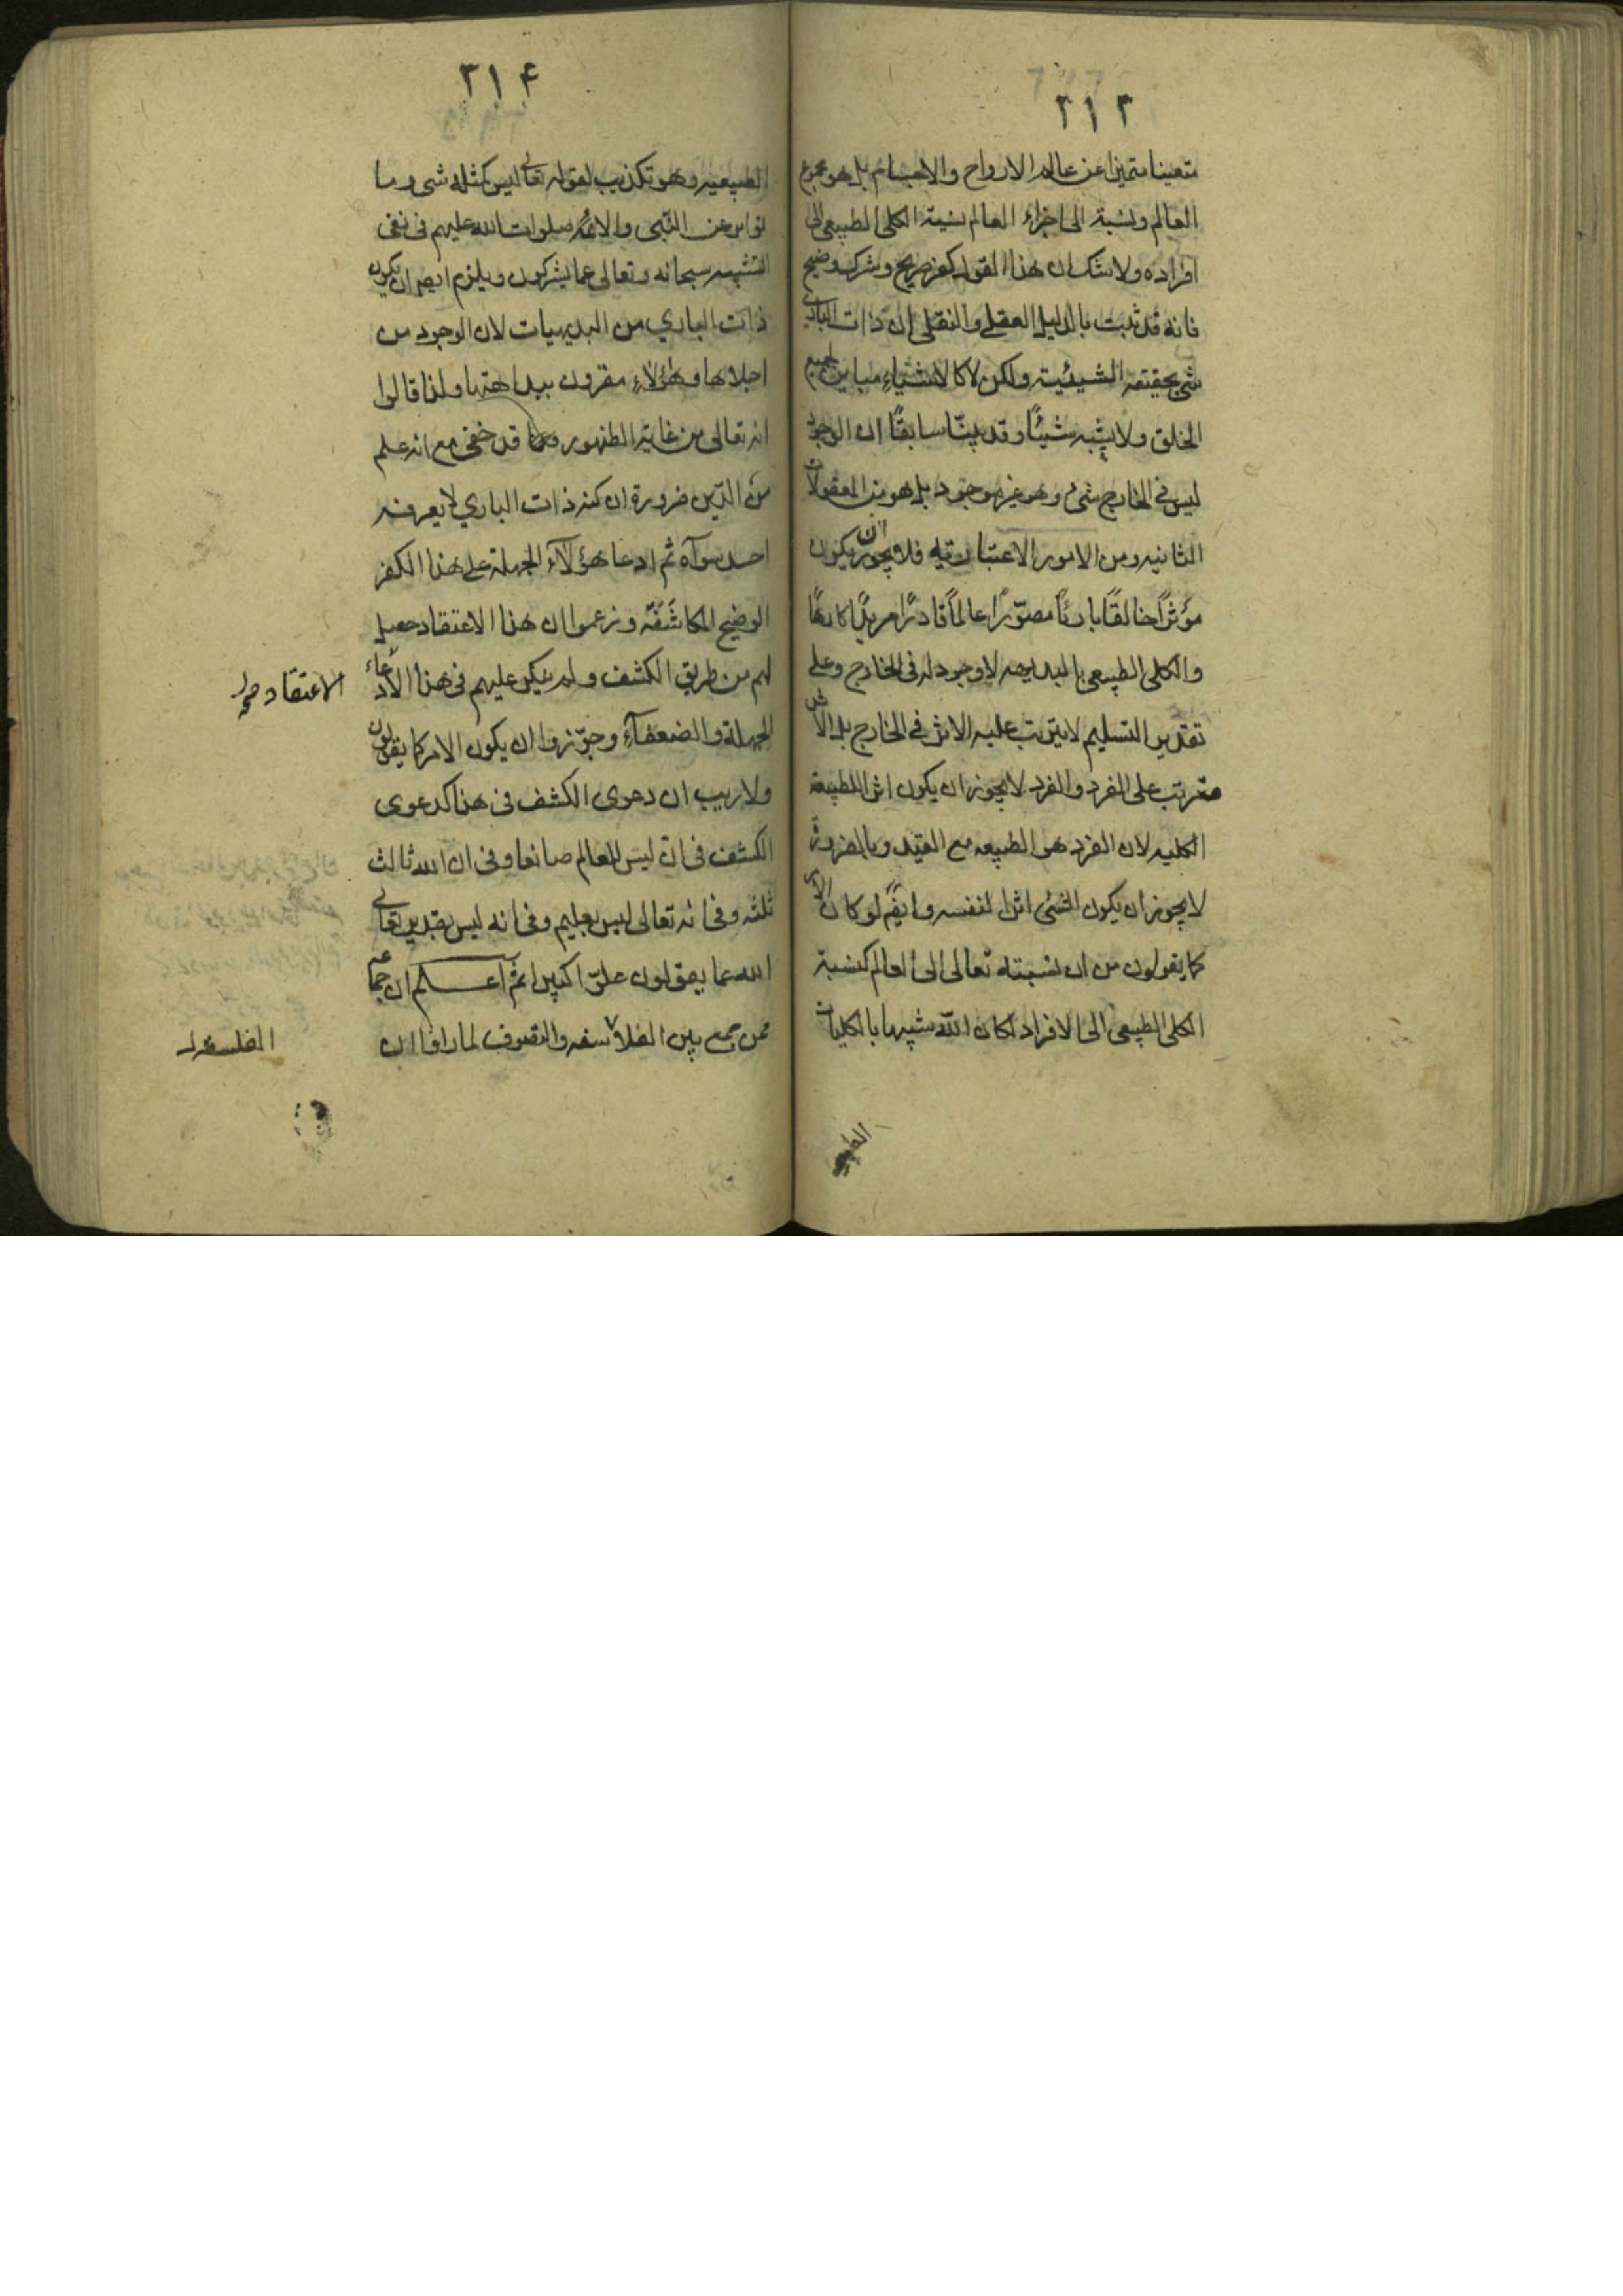 ٢١٣
متعينا متميزا عن عالم الارواح والاجسام بل هو مجموع
العالم ونسبة الى اجزاء العالم نسبة الكلى الطبيعى الى
افراده ولا شك ان هذا القول كفر صريح وشرك وضيح
فانه قد ثبت بالدليل العقلى والنقلى ان ذات البارى
شئ بحقيقة الشيئية ولكن لا كالاشياء مباين لجميع
الخلق ولا يشبه شيئًا وقد بيّنا سابقًا ان الوجود
ليس فى الخارج شئ وهو غير موجود بل هو من المعقولات
الثانيه ومن الامور الاعتباريه فلا يجوز ان يكون
مؤثرًا خالقًا بارئًا مصوّرًا عالمًا قادرًا مريدًا كارهًا
والكلى الطبيعى بالبديهه لا وجود له فى الخارج وعلى
تقدير التسليم لا يترتب عليه الاثر فى الخارج بل الاثر
مترتب على الفرد والفرد لا يجوز ان يكون اثرا للطبيعة
الكليه لان الفرد هو الطبيعه مع القيد وبالضرورة
لا يجوز ان يكون الشئ اثرا لنفسه وايضًا لو كان الامر
كما يقولون من ان نسبته تعالى الى العالم كنسبة
الكلى الطبيعى الى الافراد لكان الله شبيها بالكليات
٢١۴
الطبيعيه وهو تكذيب لقوله تعالى ليس كمثله شى وما
تواتر عن النّبى والائمّه صلوات الله عليهم فى نفى
التشبيه سبحانه وتعالى عما يشركون ويلزم ايضا ان يكون
ذات البارى من البديهيات لان الوجود من
اجلاها وهؤلاء مقرون ببداهتها ولذا قالوا
انه تعالى من غاية الظهور قد خفى مع انه علم
من الدّين ضرورة ان كنه ذات البارى لا يعرفه
احد سواه ثم ادعا هؤلاء الجهلة على هذا الكفر
الوضيح المكاشَفَه وزعموا ان هذا الاعتقاد حصل
لهم من طريق الكشف ولم ينكر عليهم فى هذا الادّعاء
الاعتقاد
الجهلة والضعفآء وجوّزوا ان يكون الامر كما يقولون
ولا ريب ان دعوى الكشف فى هذا كدعوى
الكشف فى ان ليس للعالم صانعا وفى ان الله ثالث
ثلثه وفى انه تعالى ليس بعليم وفى انه ليس بقدير تعالى
الله عما يقولون علوّا كبيرا ثم اعلم ان جماعة
ممن جمع بين الفلاسفه والتصوف لما راوا ان
الفلسفه